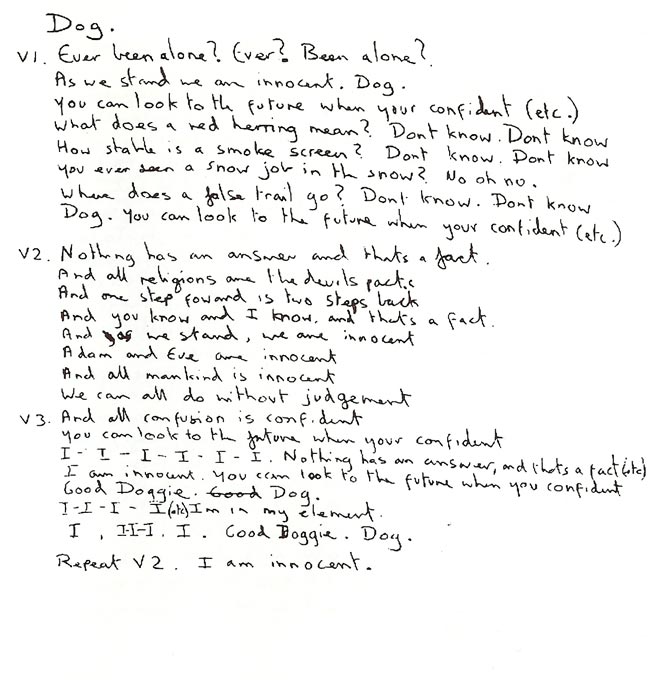 Dog.
V1. Ever been alone? Ever? Been alone?
As we stand we are innocent. Dog.
You can look to the future when your confident (etc.)
What does a red herring mean? Dont know. Dont know
How stable is a smoke screen? Dont know. Dont know
You ever seen a snow job in the snow? No oh no.
Where does a false trail go? Dont know. Dont know
Dog. You can look to the future when your confident (etc.)
V2. Nothing has an answer and thats a fact.
And all religions are the devils pact.
And one step foward is two steps back
And you know and I know, and that's a fact.
And we stand, we are innocent
Adam and Eve are innocent
And all mankind is innocent
We can all do without judgement
V3. And all confusion is confident
You can look to the future when your confident
I - I - I - I - I - I. Nothing has an answer, and thats a fact (etc)
I am innocent. You can look to the future when you confident
Good Doggie. Good Dog.
I-I-I- I (etc) Im in my element.
I, I-I-I. I. Good Doggie. Dog.
Repeat V2. I am innocent.